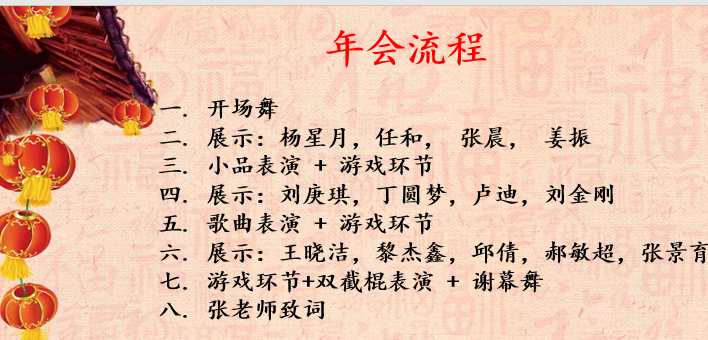 年会流程
一. 开场舞
二. 展示：杨星月，任和， 张晨， 姜振
三. 小品表演 + 游戏环节
四. 展示：刘庚琪，丁圆梦，卢迪，刘金刚
五. 歌曲表演 + 游戏环节
六. 展示：王晓洁，黎杰鑫，邱倩，郝敏超，张景育
七. 游戏环节+双截棍表演 + 谢幕舞
八. 张老师致词